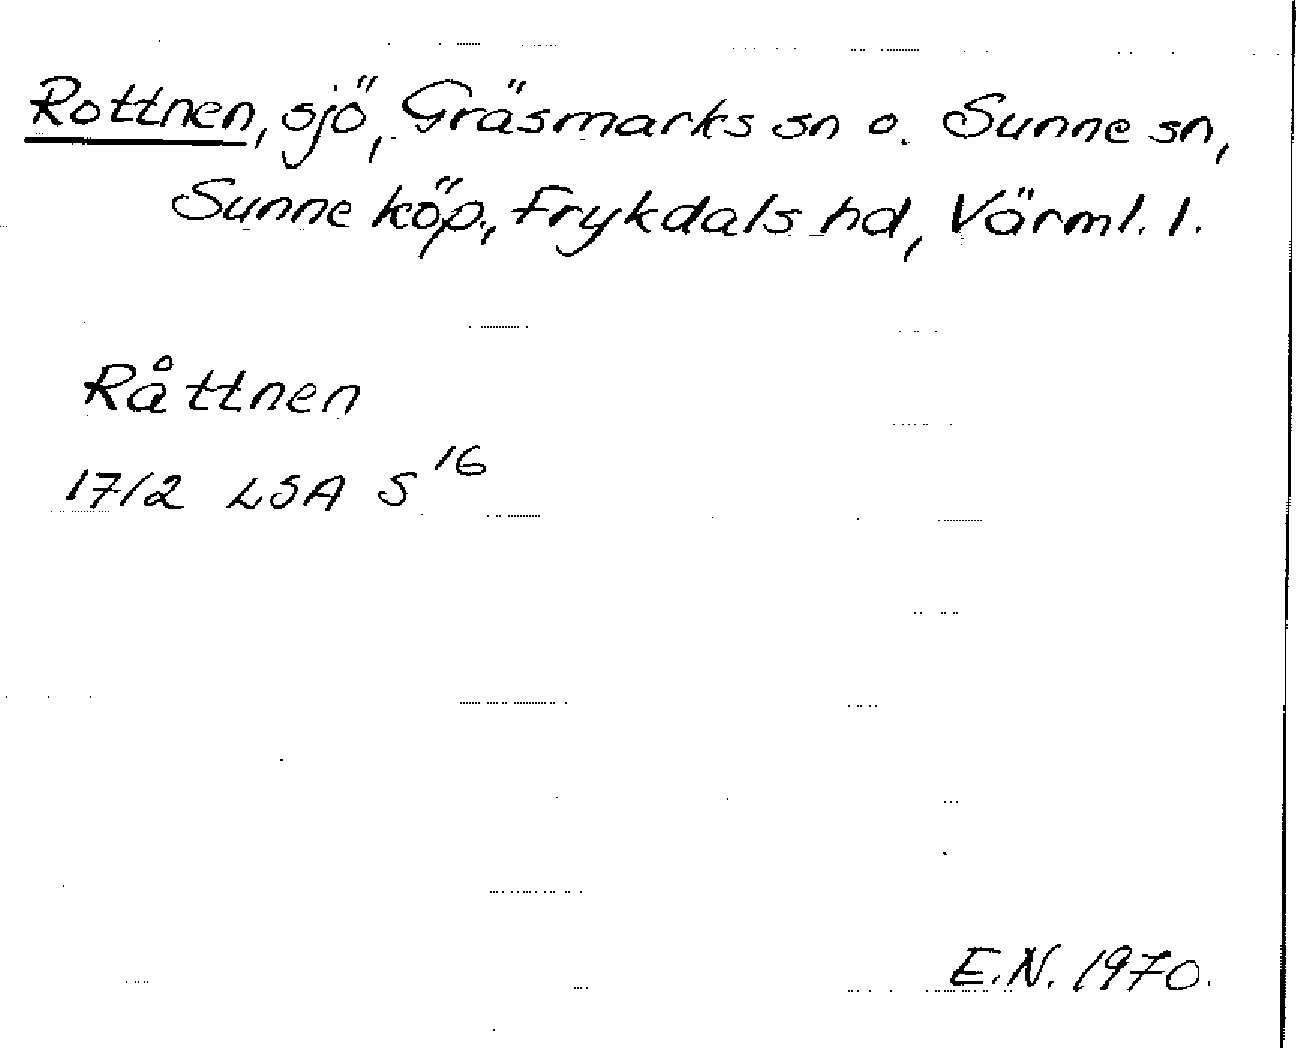 Rottnen, sjö, Gräsmarks sn o. Sunne sn,
Sunne köp., Frykdals hd, Värml. l.
Råttnen
1712 LSA S 16
E.N. 1970.